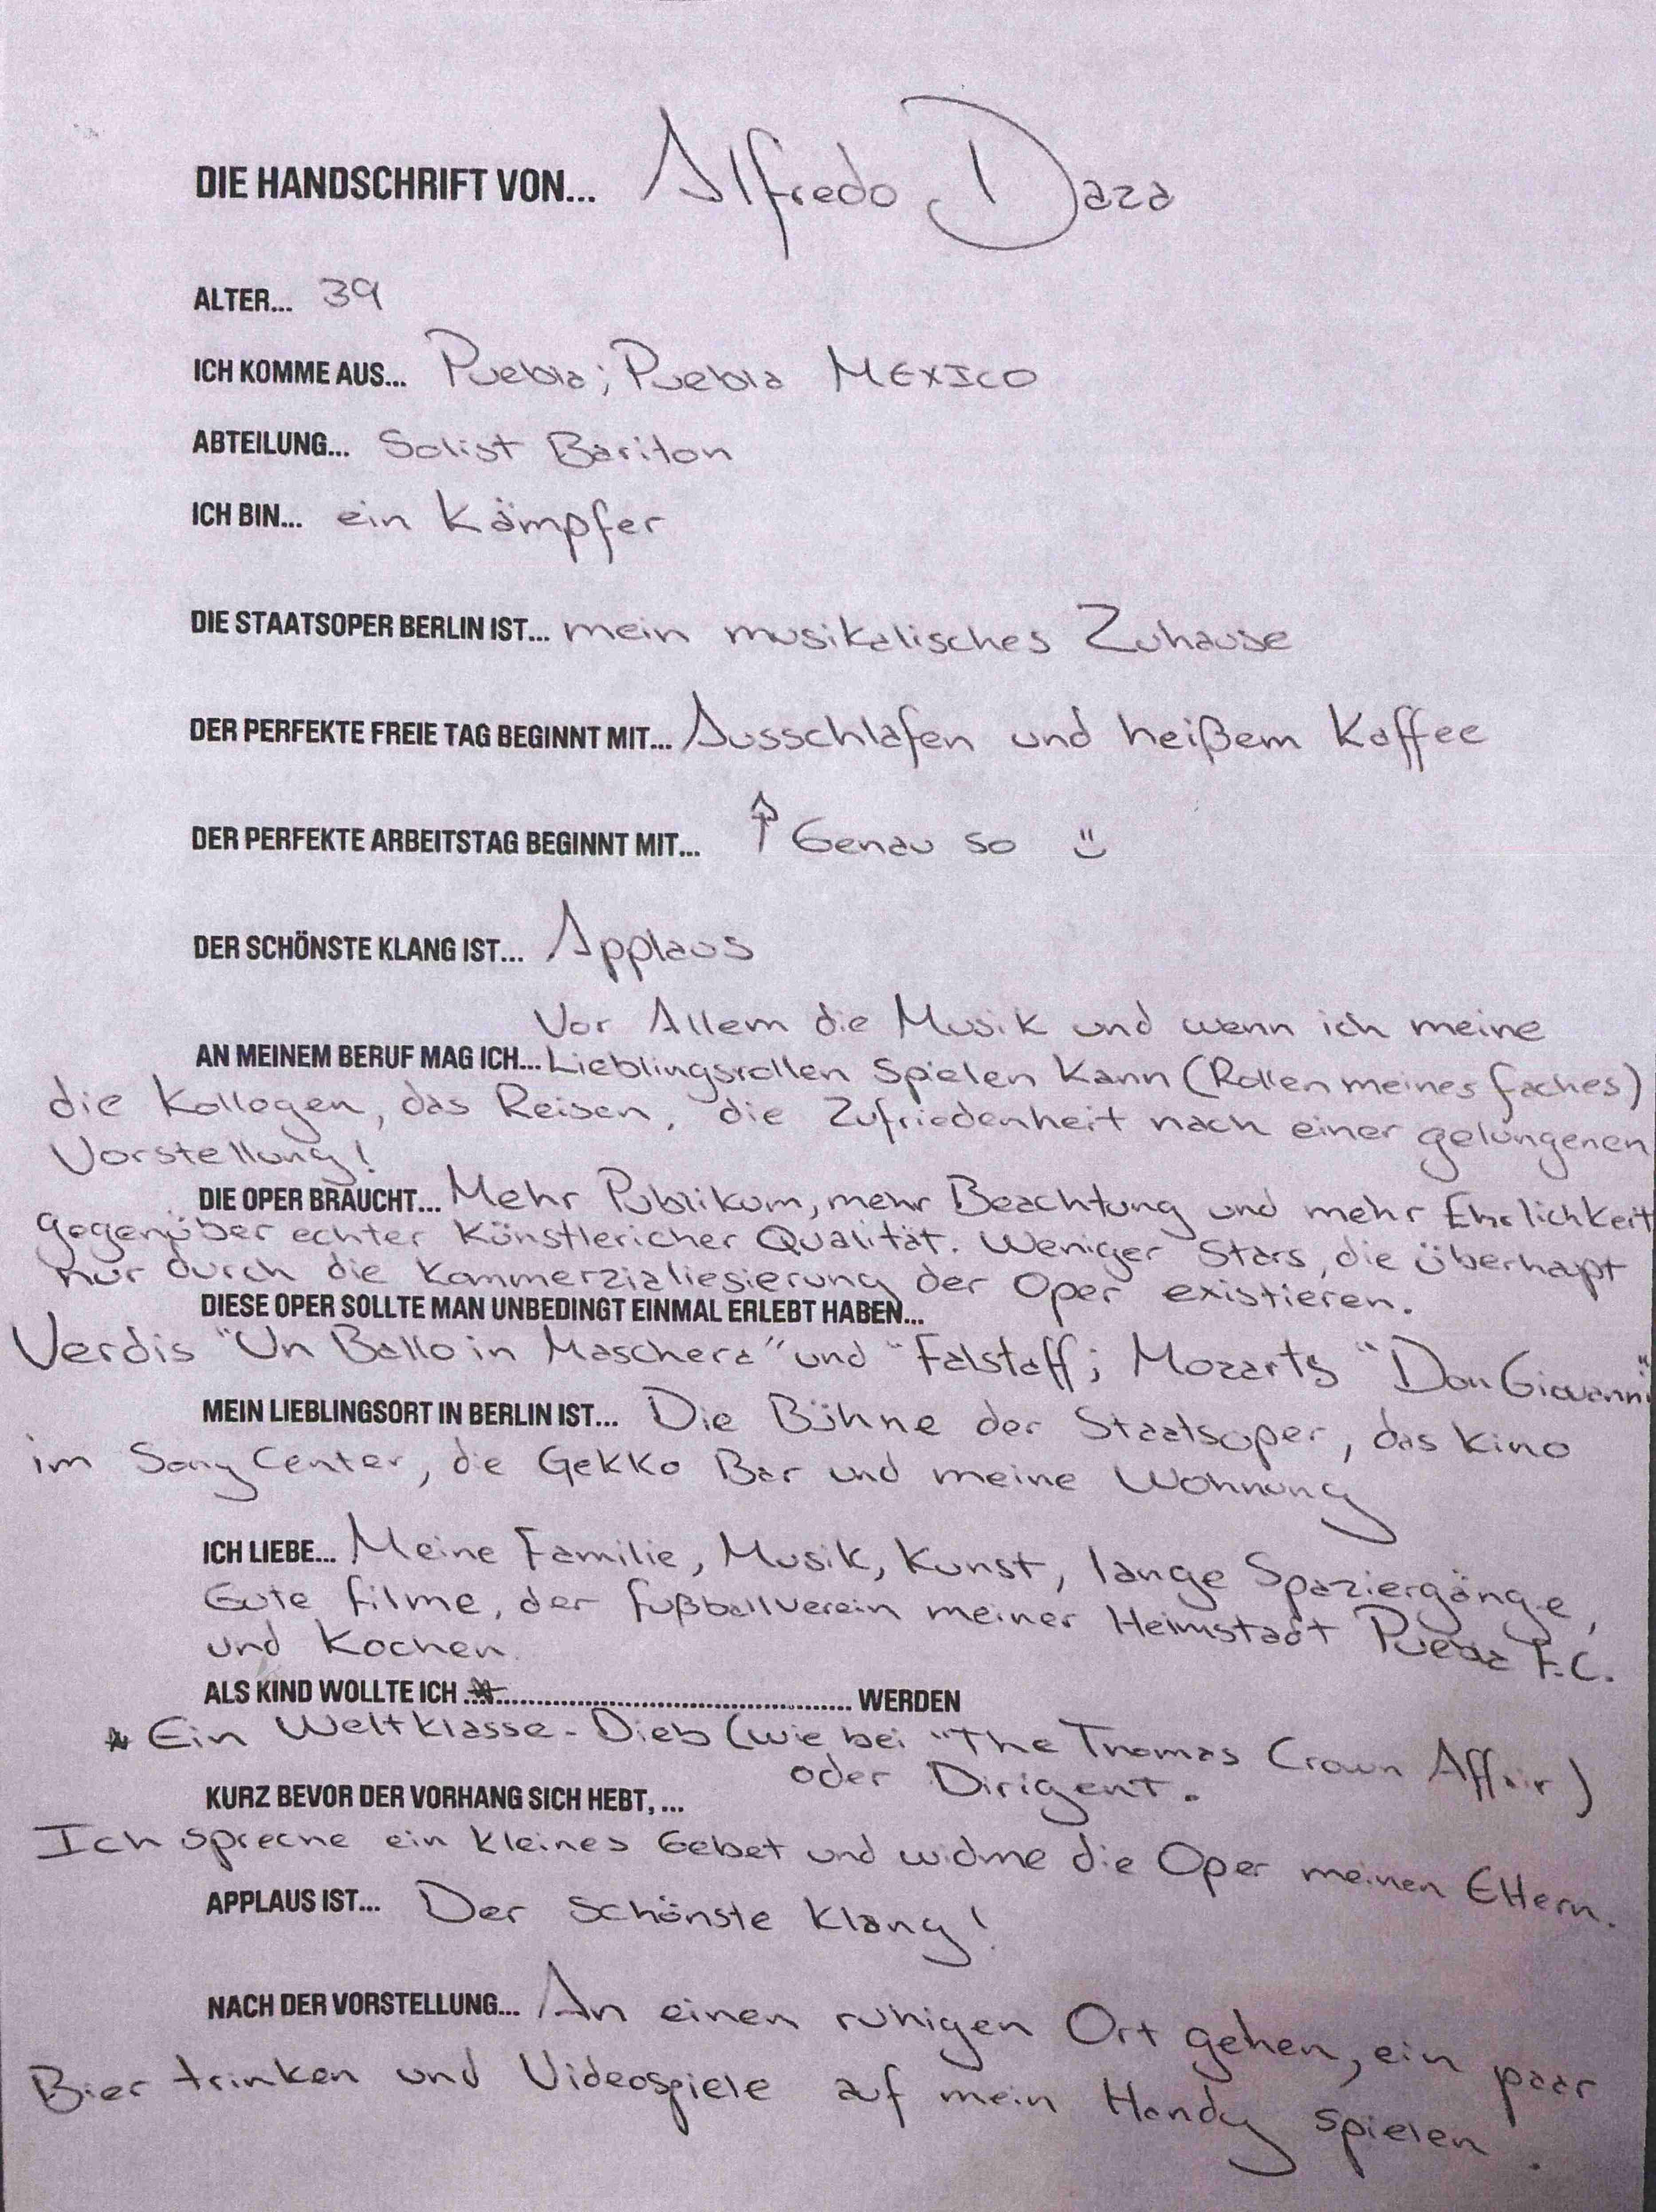 DIE HANDSCHRIFT VON... Alfredo Daza
ALTER... 39
ICH KOMME AUS... Puebla; Puebla MEXICO
ABTEILUNG... Solist Bariton
ICH BIN... ein Kämpfer
DIE STAATSOPER BERLIN IST... mein musikalisches Zuhause
DER PERFEKTE FREIE TAG BEGINNT MIT... Ausschlafen und heißem Kaffee
DER PERFEKTE ARBEITSTAG BEGINNT MIT... ↑ Genau so ü
DER SCHÖNSTE KLANG IST... Applaus
Vor Allem die Musik und wenn ich meine
AN MEINEM BERUF MAG ICH... Lieblingsrollen Spielen Kann (Rollen meines faches)
die Kollegen, das Reisen, die Zufriedenheit nach einer gelungenen
Vorstellung!
DIE OPER BRAUCHT... Mehr Publikum, mehr Beachtung und mehr Ehrlichkeit
gegenüber echter Künstlericher Qualität. Weniger Stars, die überhapt
nur durch die Kommerzialiesierung der Oper existieren.
DIESE OPER SOLLTE MAN UNBEDINGT EINMAL ERLEBT HABEN...
Verdis "Un Ballo in Maschera" und "Falstaff; Mozarts "Don Giovanni"
MEIN LIEBLINGSORT IN BERLIN IST... Die Bühne der Staatsoper, das Kino
im Sony Center, die Gekko Bar und meine Wohnung
ICH LIEBE... Meine Familie, Musik, Kunst, lange Spaziergänge,
Gute filme, der fußballverein meiner Heimstadt Puebla F.C.
und Kochen.
ALS KIND WOLLTE ICH ...*................................................ WERDEN
* Ein Weltklasse-Dieb (wie bei "The Thomas Crown Affair)
oder Dirigent.
KURZ BEVOR DER VORHANG SICH HEBT, ...
Ich spreche ein kleines Gebet und widme die Oper meinen Eltern.
APPLAUS IST... Der Schönste Klang!
NACH DER VORSTELLUNG... An einen ruhigen Ort gehen, ein paar
Bier trinken und Videospiele auf mein Handy spielen.